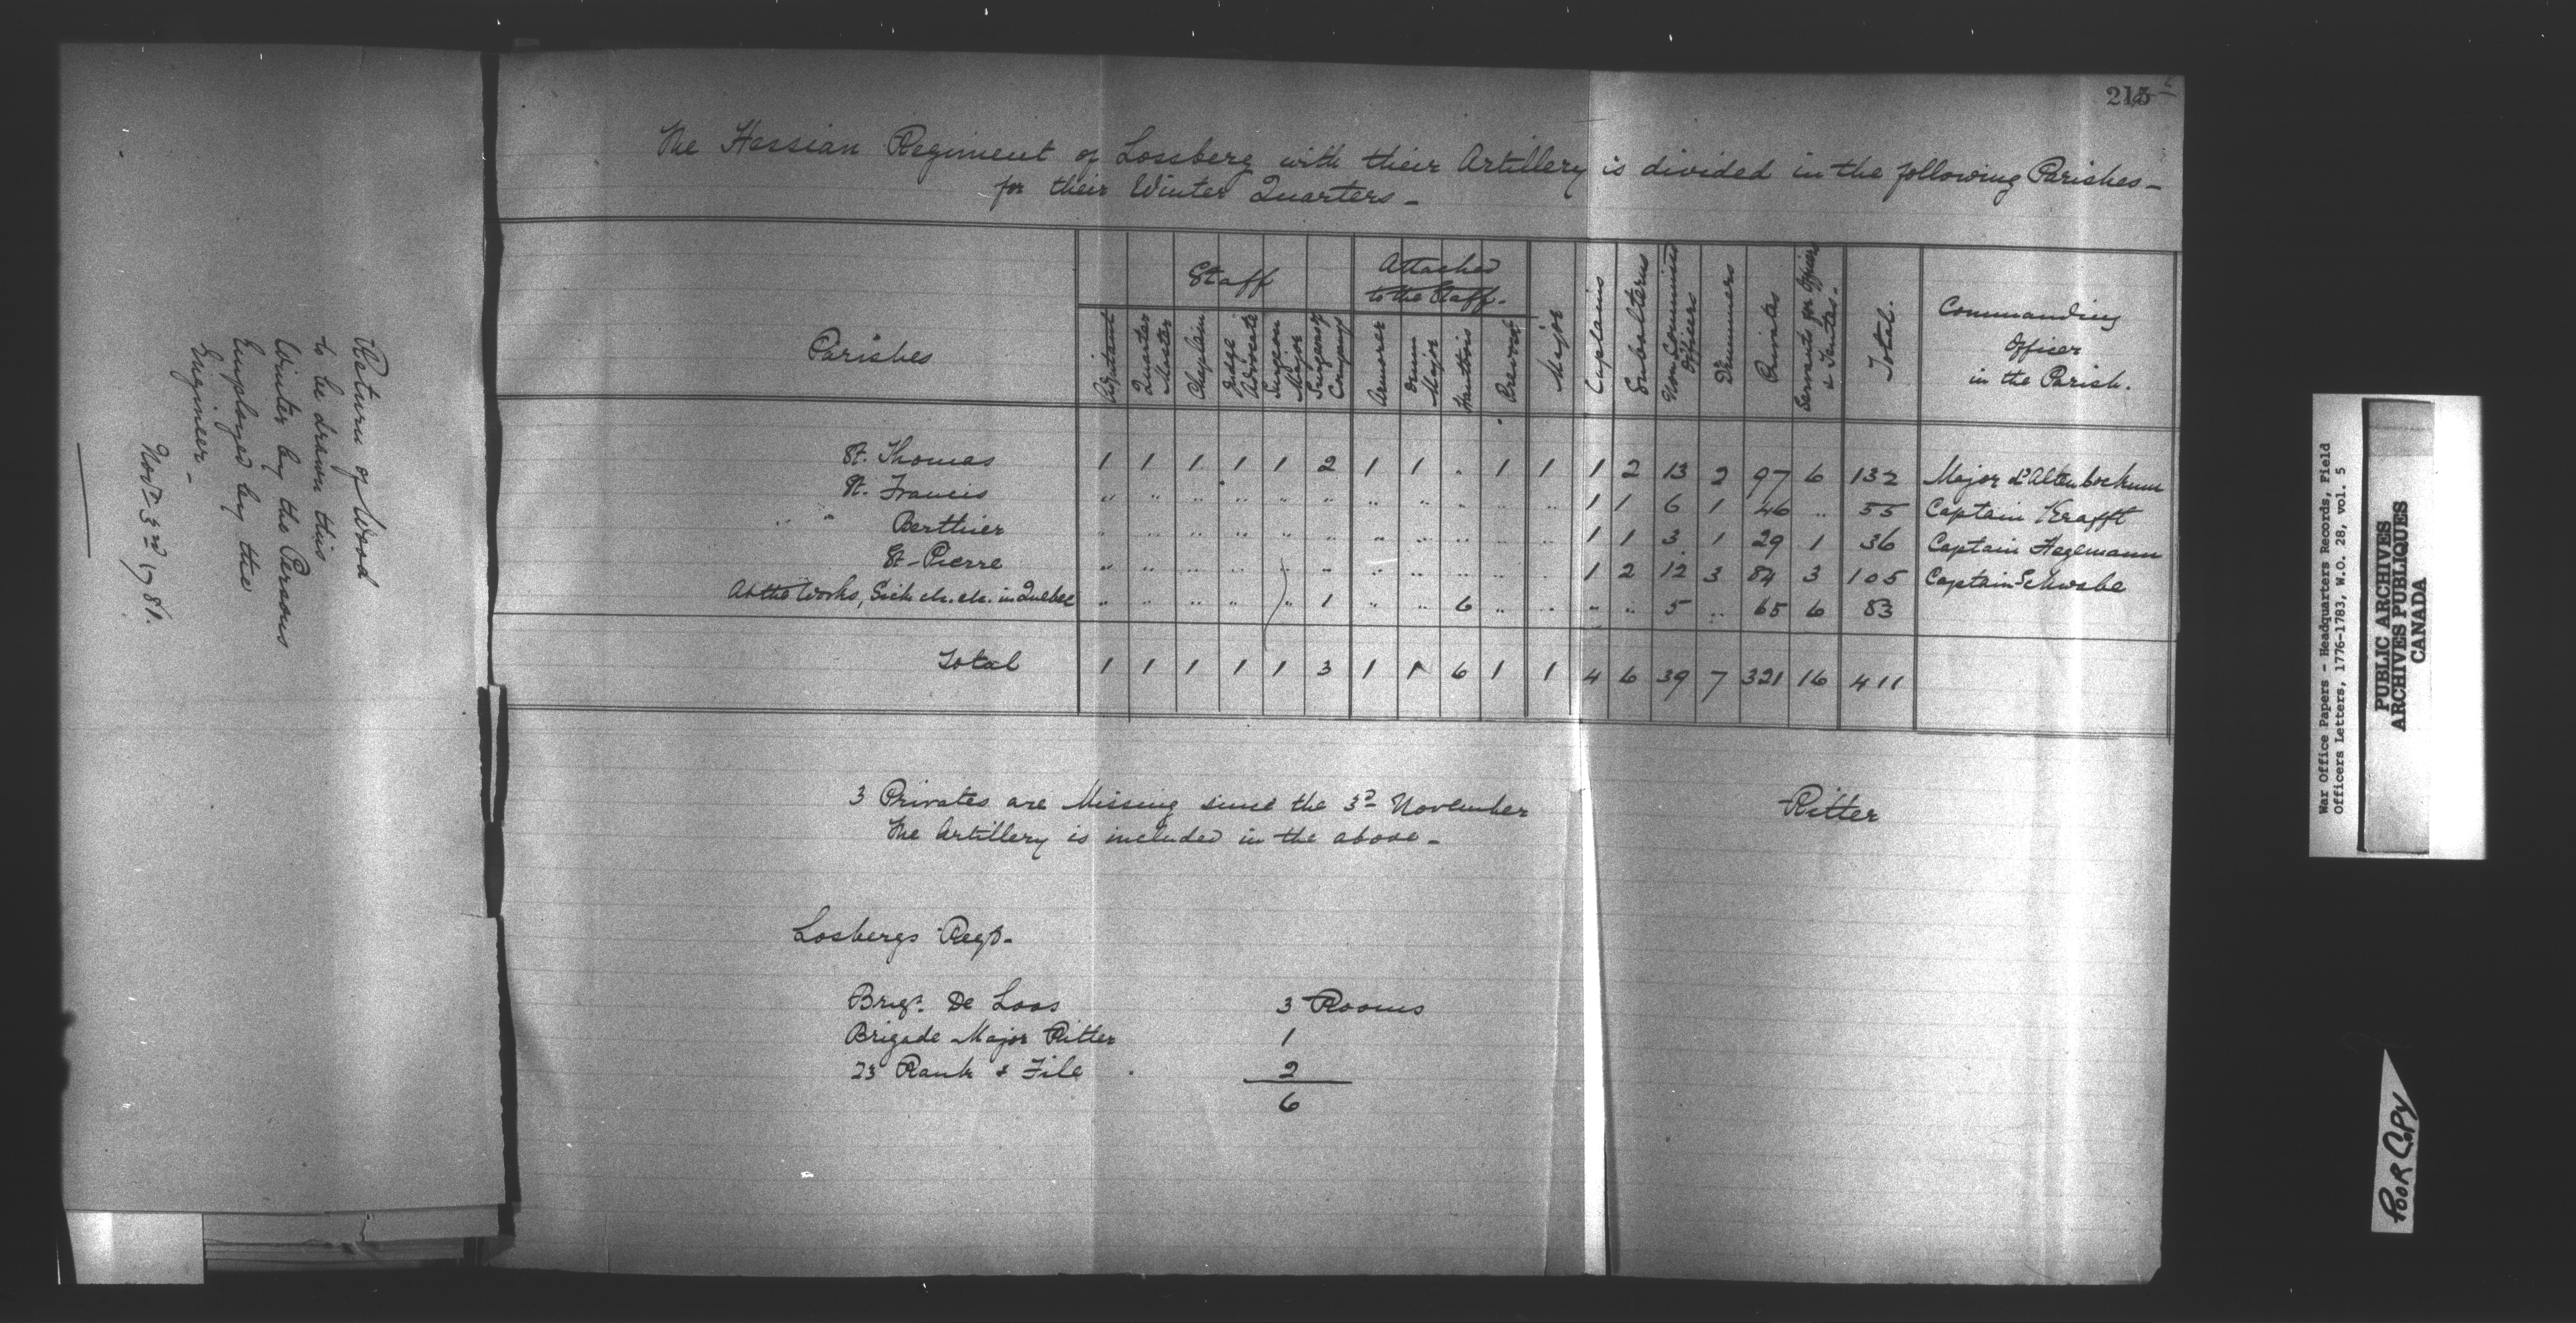 Return of Wood
to be drawn this
Winter by the Persons
Employed by the
Engineer -
Novr 3rd 1781.
215
The Hessian Regiment of Lossberg with their Artillery is divided in the following Parishes -
for their Winter Quarters -
Parishes | Staff: Adjutant | Quarter Master | Chaplain | Judge Advocate | Surgeon Major | Surgeons of Companys | Attached to the Staff: Armorer | Drum Major | Hautbois | Prevost | Major | Captains | Subalterns | Non Commissd Officers | Drummers | Privates | Servants for Officers & Tentes | Total. | Commanding Officer in the Parish.
St. Thomas | 1 | 1 | 1 | 1 | 1 | 2 | 1 | 1 | . | 1 | 1 | 1 | 2 | 13 | 2 | 97 | 6 | 132 | Major d'Altenbockum
St. Francis | " | " | " | " | " | " | " | " | " | " | " | 1 | 1 | 6 | 1 | 46 | " | 55 | Captain Krafft
" " Berthier | " | " | " | " | " | " | " | " | " | " | " | 1 | 1 | 3 | 1 | 29 | 1 | 36 | Captain Hegemann
St-Pierre | " | " | " | " | " | " | " | " | " | " | " | 1 | 2 | 12 | 3 | 84 | 3 | 105 | Captain Schwabe
At the Works, Sick etc. etc. in Quebec | " | " | " | " | " | 1 | " | " | 6 | " | " | " | " | 5 | " | 65 | 6 | 83
Total | 1 | 1 | 1 | 1 | 1 | 3 | 1 | 1 | 6 | 1 | 1 | 4 | 6 | 39 | 7 | 321 | 16 | 411
3 Privates are Missing since the 3d November
The Artillery is included in the above -
Ritter
Losbergs Regt.
Brigr. De Loos 3 Rooms
Brigade Major Ritter 1
23 Rank & File 2
6
War Office Papers - Headquarters Records, Field
Officers Letters, 1776-1783, W.O. 28, vol. 5
PUBLIC ARCHIVES
ARCHIVES PUBLIQUES
CANADA
POOR COPY